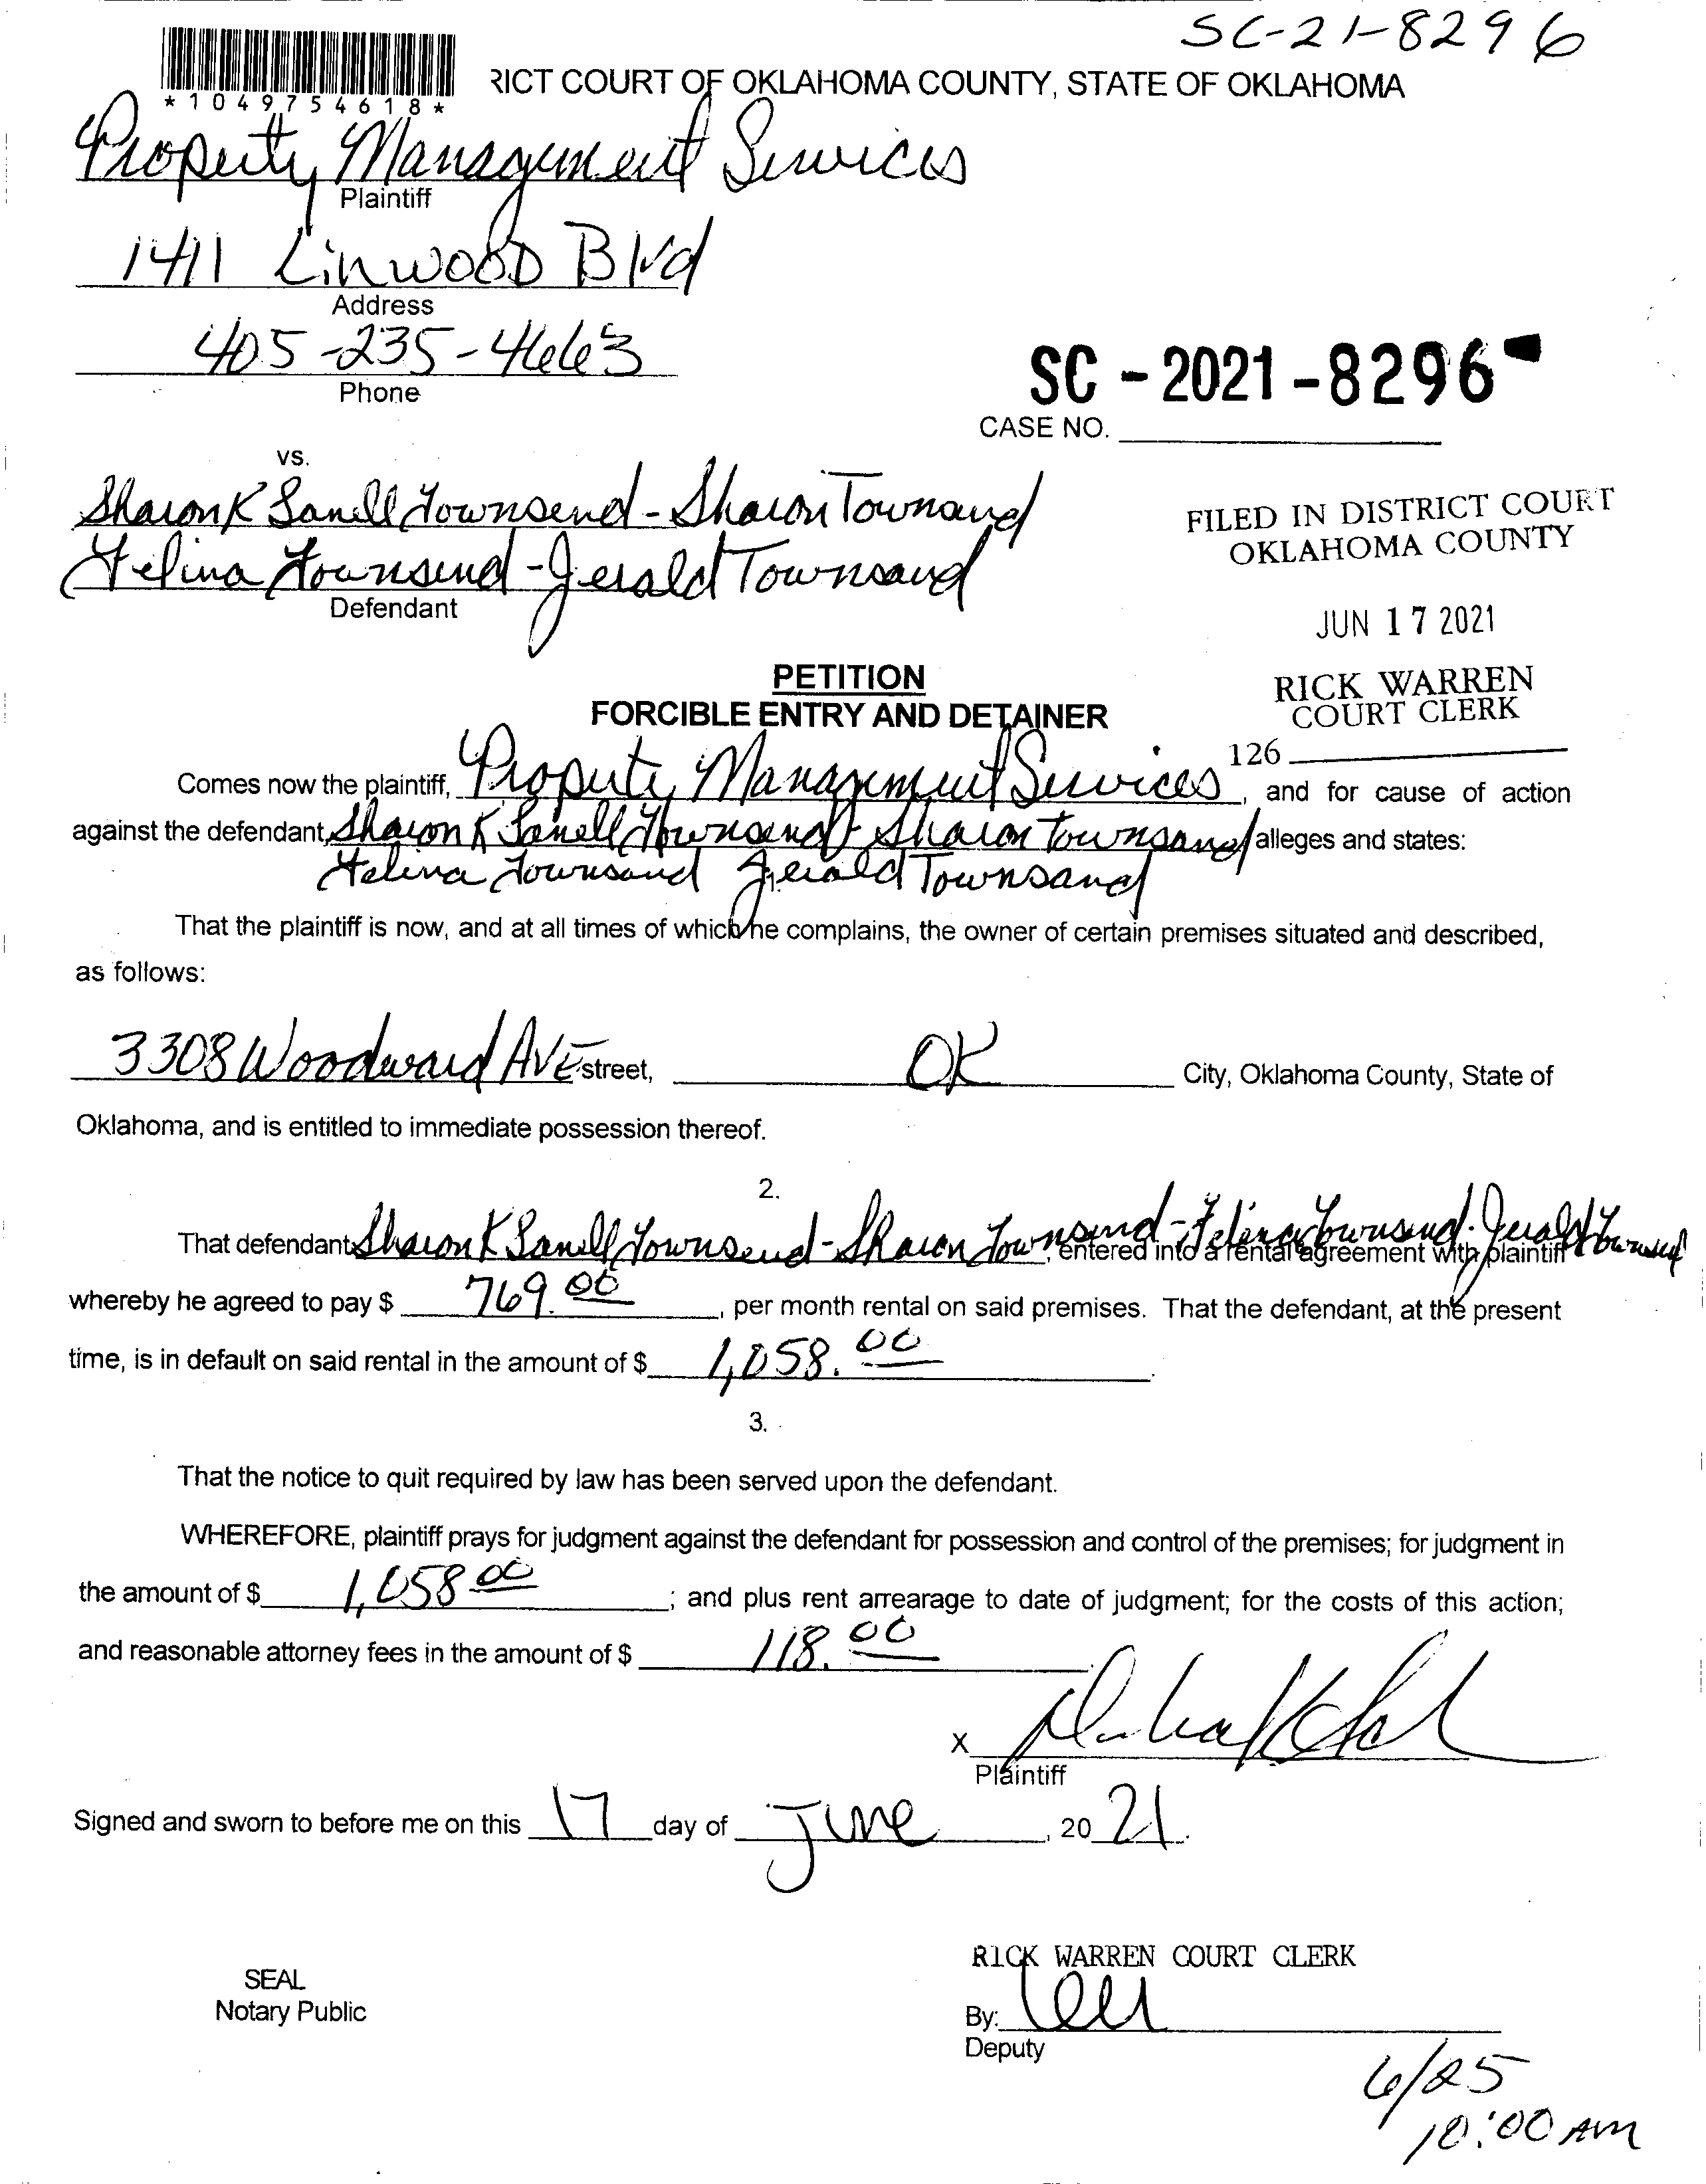 SC-21-8296
*1049754618*
RICT COURT OF OKLAHOMA COUNTY, STATE OF OKLAHOMA
Property Management Services
Plaintiff
1411 Linwood Blvd
Address
405-235-4663
Phone
SC - 2021 - 8296
CASE NO.
vs.
Sharon K Lanell Townsend - Sharon Townsand
Felina Townsend - Gerald Townsand
Defendant
FILED IN DISTRICT COURT
OKLAHOMA COUNTY
JUN 17 2021
RICK WARREN
COURT CLERK
126
PETITION
FORCIBLE ENTRY AND DETAINER
Comes now the plaintiff, Property Management Services, and for cause of action
against the defendant, Sharon K Lanell Townsend - Sharon Townsand alleges and states:
Felina Townsand Gerald Townsand
That the plaintiff is now, and at all times of which he complains, the owner of certain premises situated and described,
as follows:
3308 Woodward AVE street, OK City, Oklahoma County, State of
Oklahoma, and is entitled to immediate possession thereof.
2.
That defendant Sharon K Lanell Townsend - Sharon Townsend - Felina Townsend - Gerald Townsend, entered into a rental agreement with plaintiff
whereby he agreed to pay $ 769.00, per month rental on said premises. That the defendant, at the present
time, is in default on said rental in the amount of $ 1,058.00.
3.
That the notice to quit required by law has been served upon the defendant.
WHEREFORE, plaintiff prays for judgment against the defendant for possession and control of the premises; for judgment in
the amount of $ 1,058.00; and plus rent arrearage to date of judgment; for the costs of this action;
and reasonable attorney fees in the amount of $ 118.00.
X
Plaintiff
Signed and sworn to before me on this 17 day of June, 2021.
RICK WARREN COURT CLERK
SEAL
Notary Public
By:
Deputy
6/25
10:00 AM